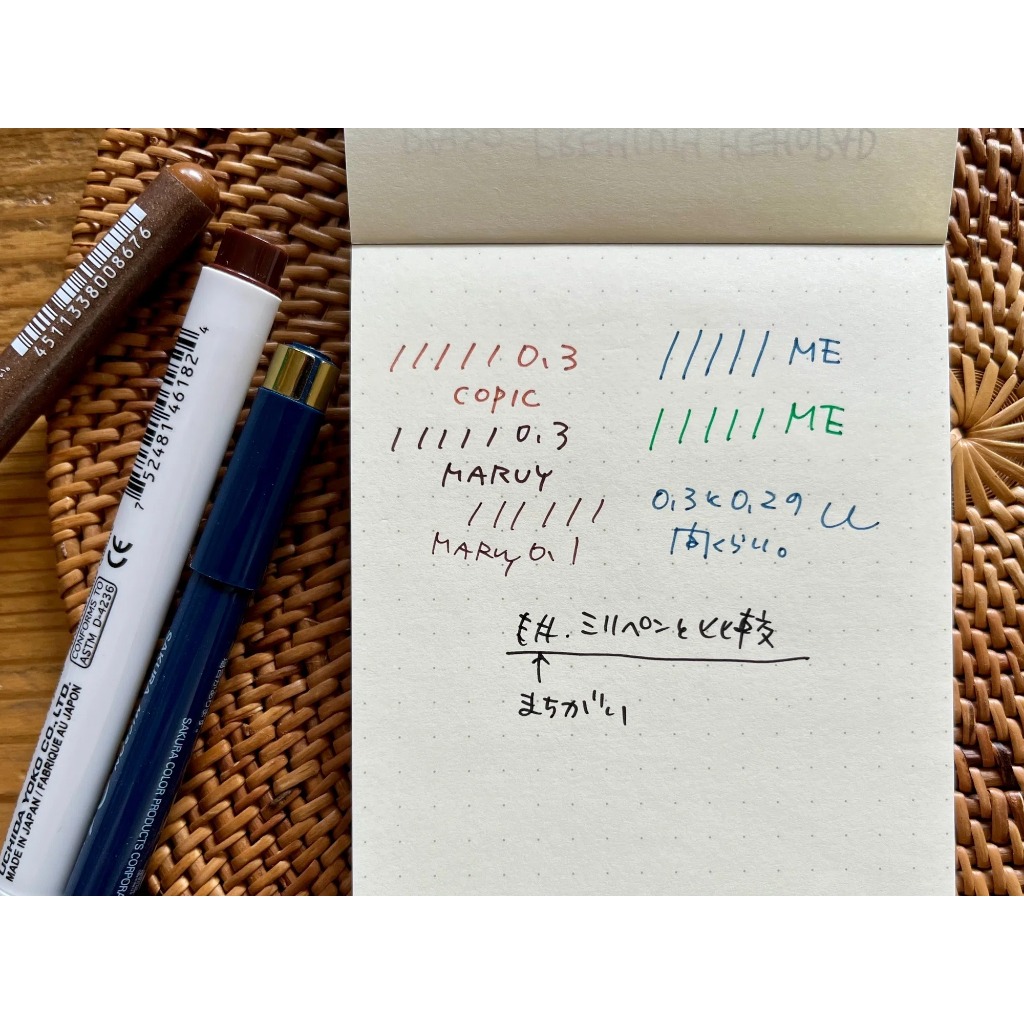 4511338008676
7 52481 46182 4
CE
CONFORMS TO
ASTM D-4236
UCHIDA YOKO CO., LTD.
MADE IN JAPAN / FABRIQUE AU JAPON
SAKURA
SAKURA COLOR PRODUCTS
0.3
COPIC
0.3
MARUY
MARUY 0.1
ME
ME
0.3と0.29
同じくらい。
ミリペンと比較
↑
まちがい